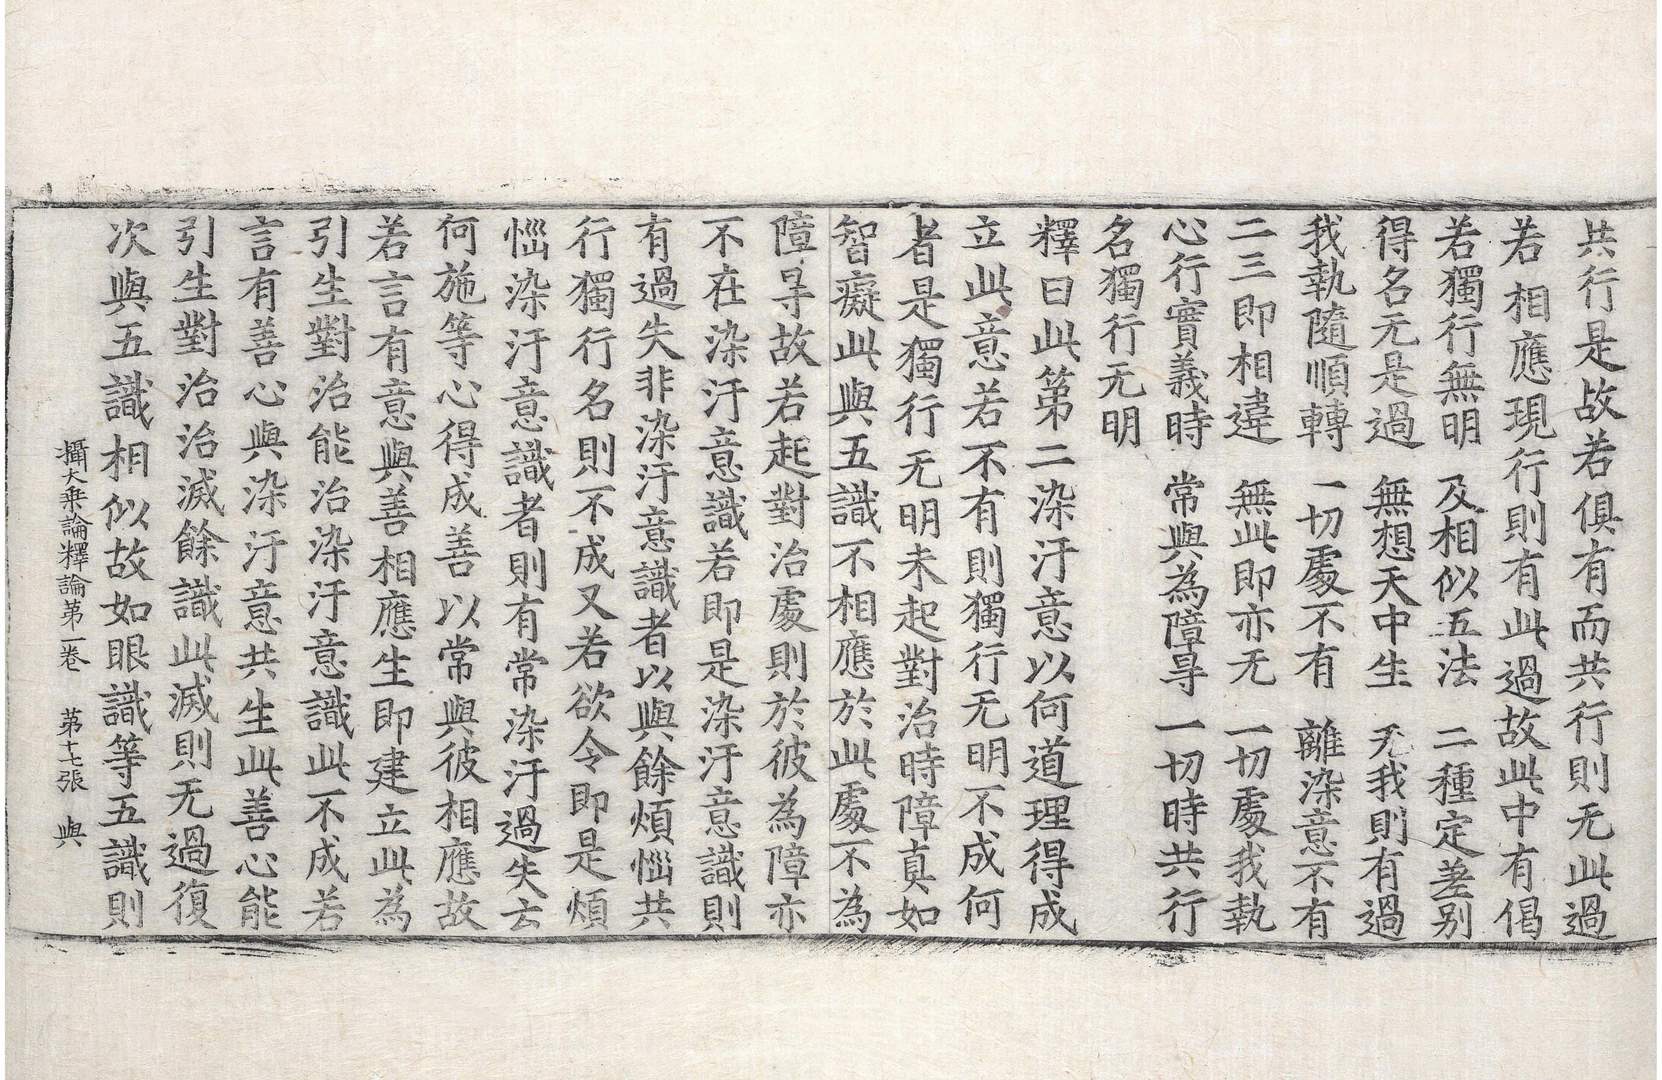 共行是故若俱有而共行則无此過
若相應現行則有此過故此中有偈
若獨行無明　及相似五法　二種定差别
得名无是過　無想天中生　无我則有過
我執隨順轉　一切處不有　離染意不有
二三即相違　無此即亦无　一切處我執
心行實義時　常與為障㝵　一切時共行
名獨行无明
釋曰此第二染汙意以何道理得成
立此意若不有則獨行无明不成何
者是獨行无明未起對治時障真如
智癡此與五識不相應於此處不為
障㝵故若起對治處則於彼為障亦
不在染汙意識若即是染汙意識則
有過失非染汙意識者以與餘煩惱共
行獨行名則不成又若欲令即是煩
惱染汙意識者則有常染汙過失云
何施等心得成善以常與彼相應故
若言有意與善相應生即建立此為
引生對治能治染汙意識此不成若
言有善心與染汙意共生此善心能
引生對治治滅餘識此滅則无過復
次與五識相似故如眼識等五識則
攝大乗論釋論第一卷　第十七張　與